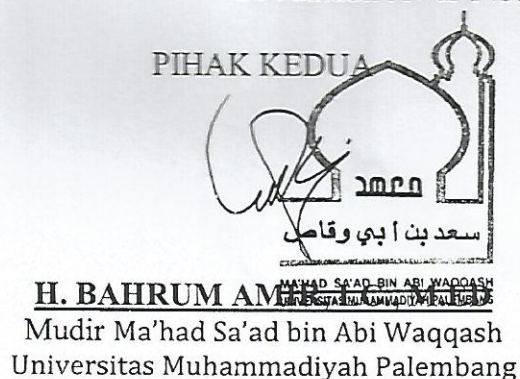 PIHAK KEDUA
معهد
سعد بن أبي وقاص
MA'HAD SA'AD BIN ABI WAQQASH
UNIVERSITAS MUHAMMADIYAH PALEMBANG
H. BAHRUM
Mudir Ma'had Sa'ad bin Abi Waqqash
Universitas Muhammadiyah Palembang